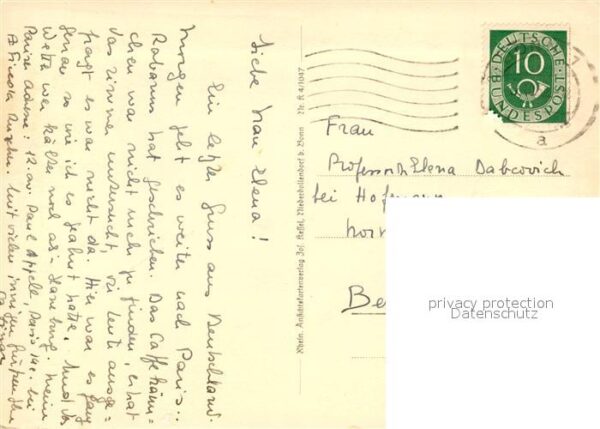 Liebe Frau Elena!
Ein letzter Gruss aus Deutschland.
Morgen geht es weiter nach Paris..
hat geschrieben. Das
chen war nicht mehr zu finden, er hat
das Zimmer untersucht, die Leute ausge-
fragt es war nicht da. Hier war es
so wie ich es geahnt hatte. Und das
Wetter war kälter noch als Hamburg. Meine
Pariser Adresse: 12 av. Paul Appell, Paris 14e. bei
mit vielen innigen
Rhein. Ansichtskartenverlag Jos. Kessel, Niederdollendorf b. Bonn Nr. R 4/1047
DEUTSCHE
10
BUNDESPOST
a
Frau
Professor Elena Dabcovich
bei Hofmann
Be
privacy protection
Datenschutz